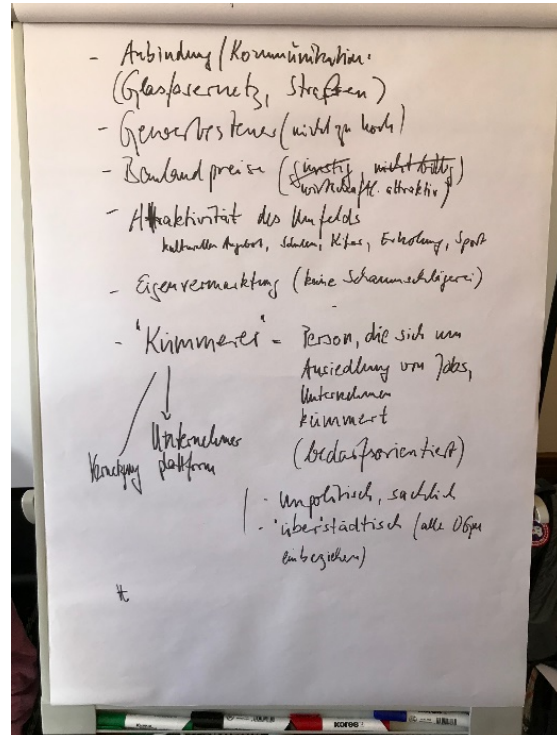 - Anbindung/Kommunikation.
(Glasfasernetz, Straßen)
- Gewerbesteuer (nicht zu hoch)
- Baulandpreise (günstig nicht billig)
wirtschaftl. attraktiv
- Attraktivität des Umfelds
kulturelles Angebot, Schulen, Kitas, Erholung, Sport
- Eigenvermarktung (keine Schaumschlägerei)
- "Kümmerer" = Person, die sich um
Ansiedlung von Jobs,
Unternehmen
kümmert
(bedarfsorientiert)
Vernetzung
Unternehmer
plattform
- unpolitisch, sachlich
- "über"städtisch (alle OGen
einbeziehen)
kores